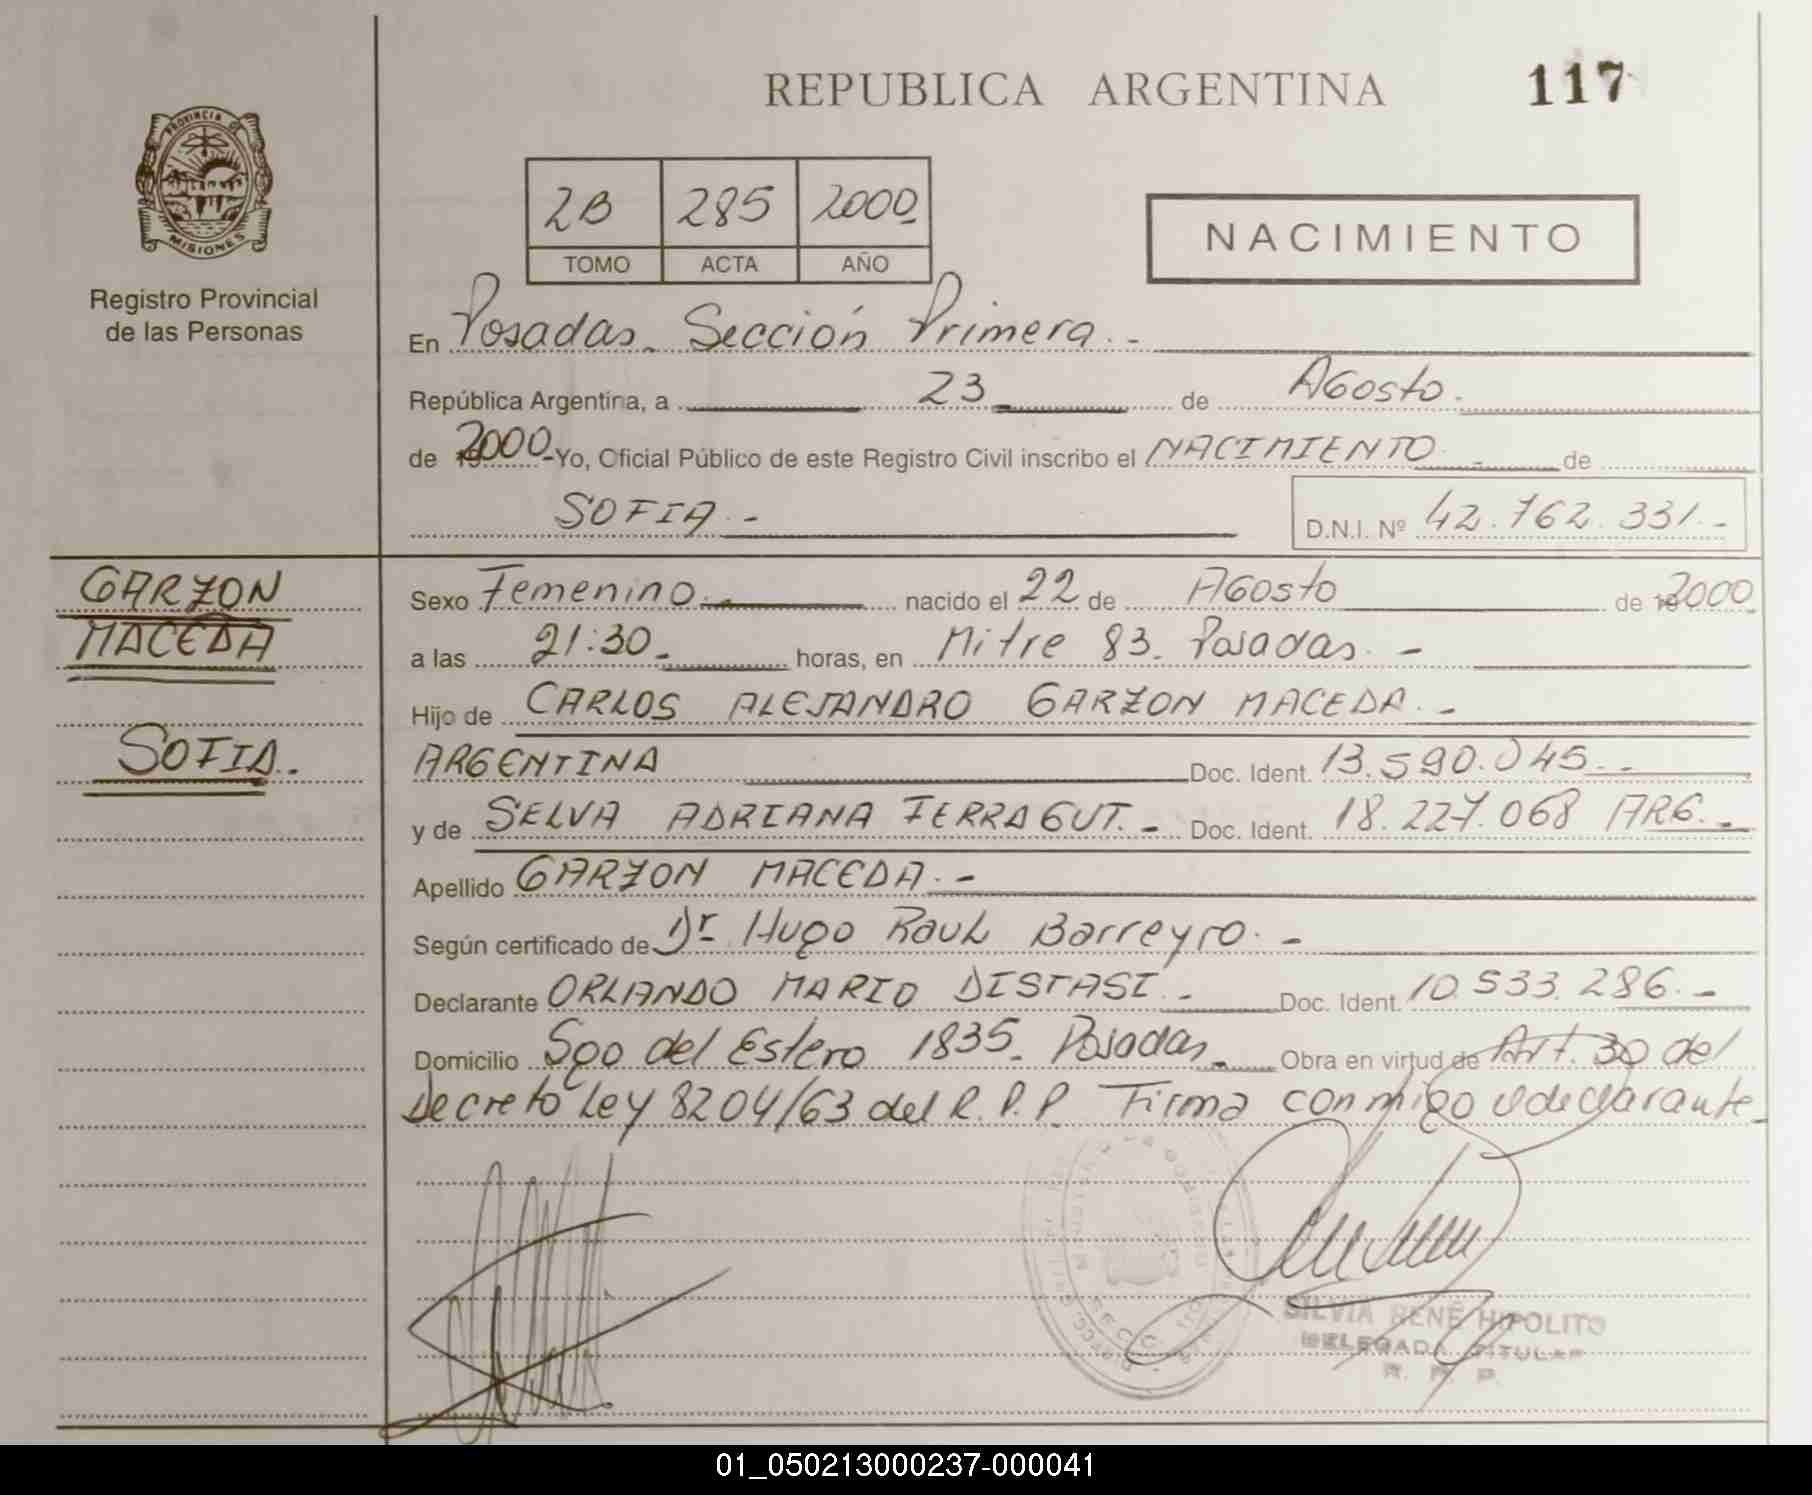 REPUBLICA ARGENTINA 117
PROVINCIA DE
MISIONES
Registro Provincial
de las Personas
2B 285 2000
TOMO ACTA AÑO
NACIMIENTO
En Posadas. Sección Primera.-
República Argentina, a 23 de Agosto.
de 2000-Yo, Oficial Público de este Registro Civil inscribo el NACIMIENTO.- de
SOFIA.-
D.N.I. Nº 42.762.331.-
GARZON
MACEDA
SOFIA.
Sexo Femenino.- nacido el 22 de Agosto de 2000
a las 21:30.- horas, en Mitre 83. Posadas.-
Hijo de CARLOS ALEJANDRO GARZON MACEDA.-
ARGENTINA Doc. Ident. 13.590.045.-
y de SELVA ADRIANA FERRAGUT.- Doc. Ident. 18.227.068 ARG.-
Apellido GARZON MACEDA.-
Según certificado de Dr. Hugo Raul Barreyro.-
Declarante ORLANDO MARIO DISTASI.- Doc. Ident. 10.533.286.-
Domicilio Sgo del Estero 1835. Posadas.- Obra en virtud de Art. 30 del
Decreto Ley 8204/63 del R.P.P. Firma conmigo el declarante.
SILVIA RENÉ HIPOLITO
DELEGADA TITULAR
R. P. P.
01_050213000237-000041